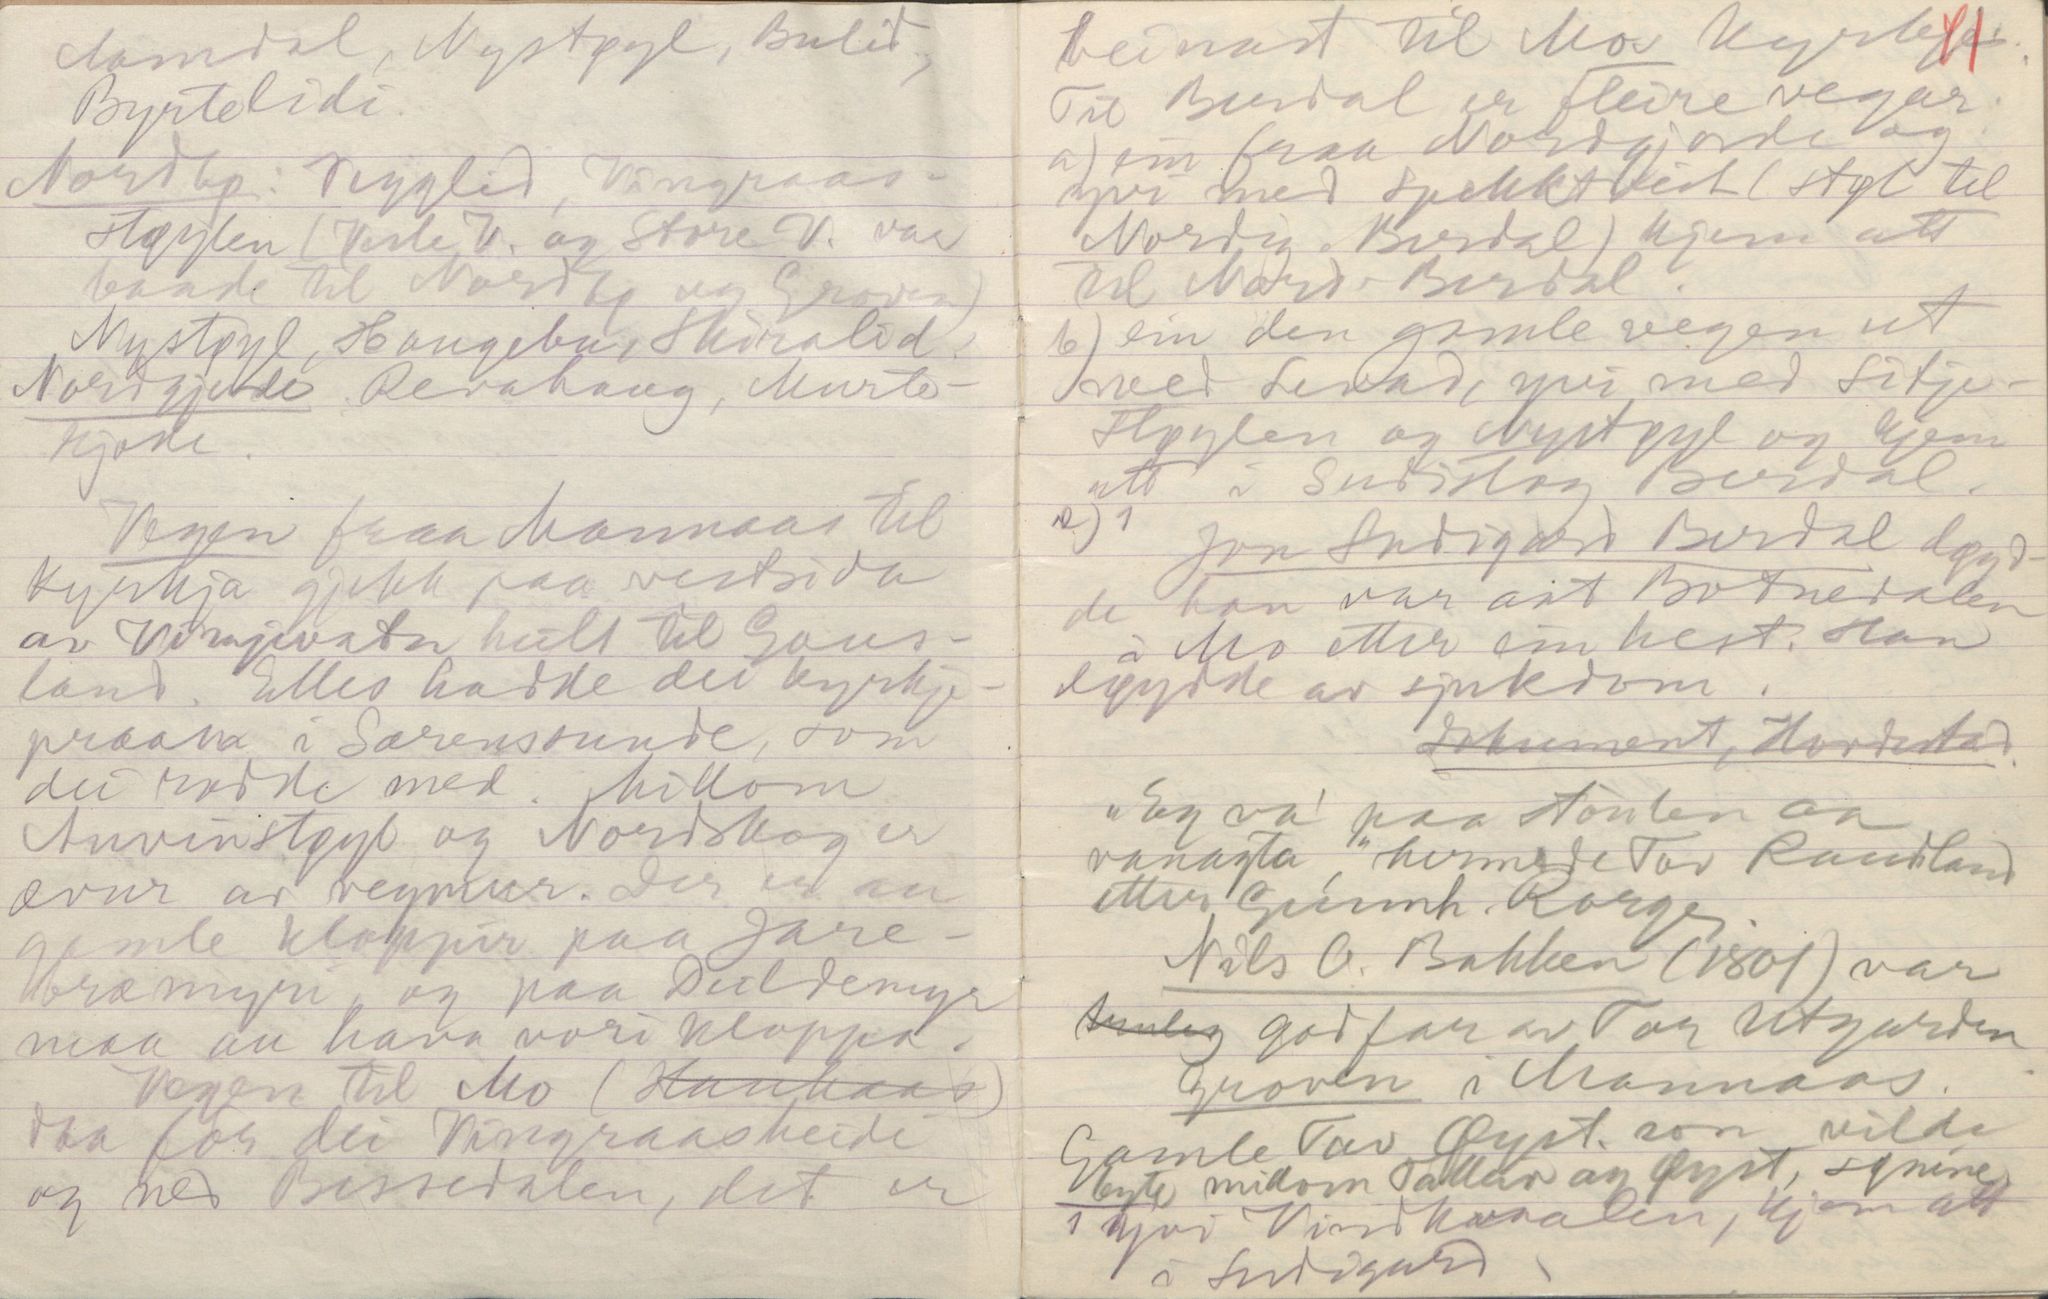 Aamdal, Nystøyl, Bulid,
Byrtelidi.
Nordbø: Vegglid, Vingraas-
støylen (Vesle V. og Store V. var
baade til Nordbø og Groven)
Nystøyl, Haugebu, Skiralid.
Nordgjorde Revahaug, Murte-
kjode.
Vegen fraa Mannaas til
kyrkja gjekk paa vestsida
av Vinjevatn heilt til Gaus-
land. Elles hadde dei kyrkje-
praam i Særensounde, som
dei rodde med. Millom
Auvinstøyl og Nordskog er
ovur av vegmur. Der er au
gamle kloppir paa Jare-
bræmyri, og paa Duldemyr
maa au hava vori kloppa.
Vegen til Mo (Haukaas)
daa for dei Vingraasheidi
og ned Bessedalen, det er
beinast til Mo Kyrkje.
71
Til Burdal er fleire vegar.
a) ein fraa Nordgjorde og
yvi med Spekktveit (støl til
Nordig. Burdal) kjem att
til Nord-Burdal.
b) ein den gamle vegen ut
med Sevad, yvi med Sitje-
støylen og Nystøyl og kjem
att i Sudistog Burdal.
c) 1
Jon Sudigard Burdal døyd-
de han var aat Botnedalen
i Mo etter ein hest. Han
døydde av sjukdom.
Dokument, Hovdestad.
"Eg va' paa stoulen aa
vanagta", hermede Tov Raudland
etter Gunnh. Rorge.
Nils O. Bakken (1801) var
truleg godfar av Tor Utgarden
Groven i Mannaas.
Gamle Tov Øyst. son vilde
byte millom Tallav og Øyst, synine
1 yvi Vindkvaalen, kjem att
i Sudigard